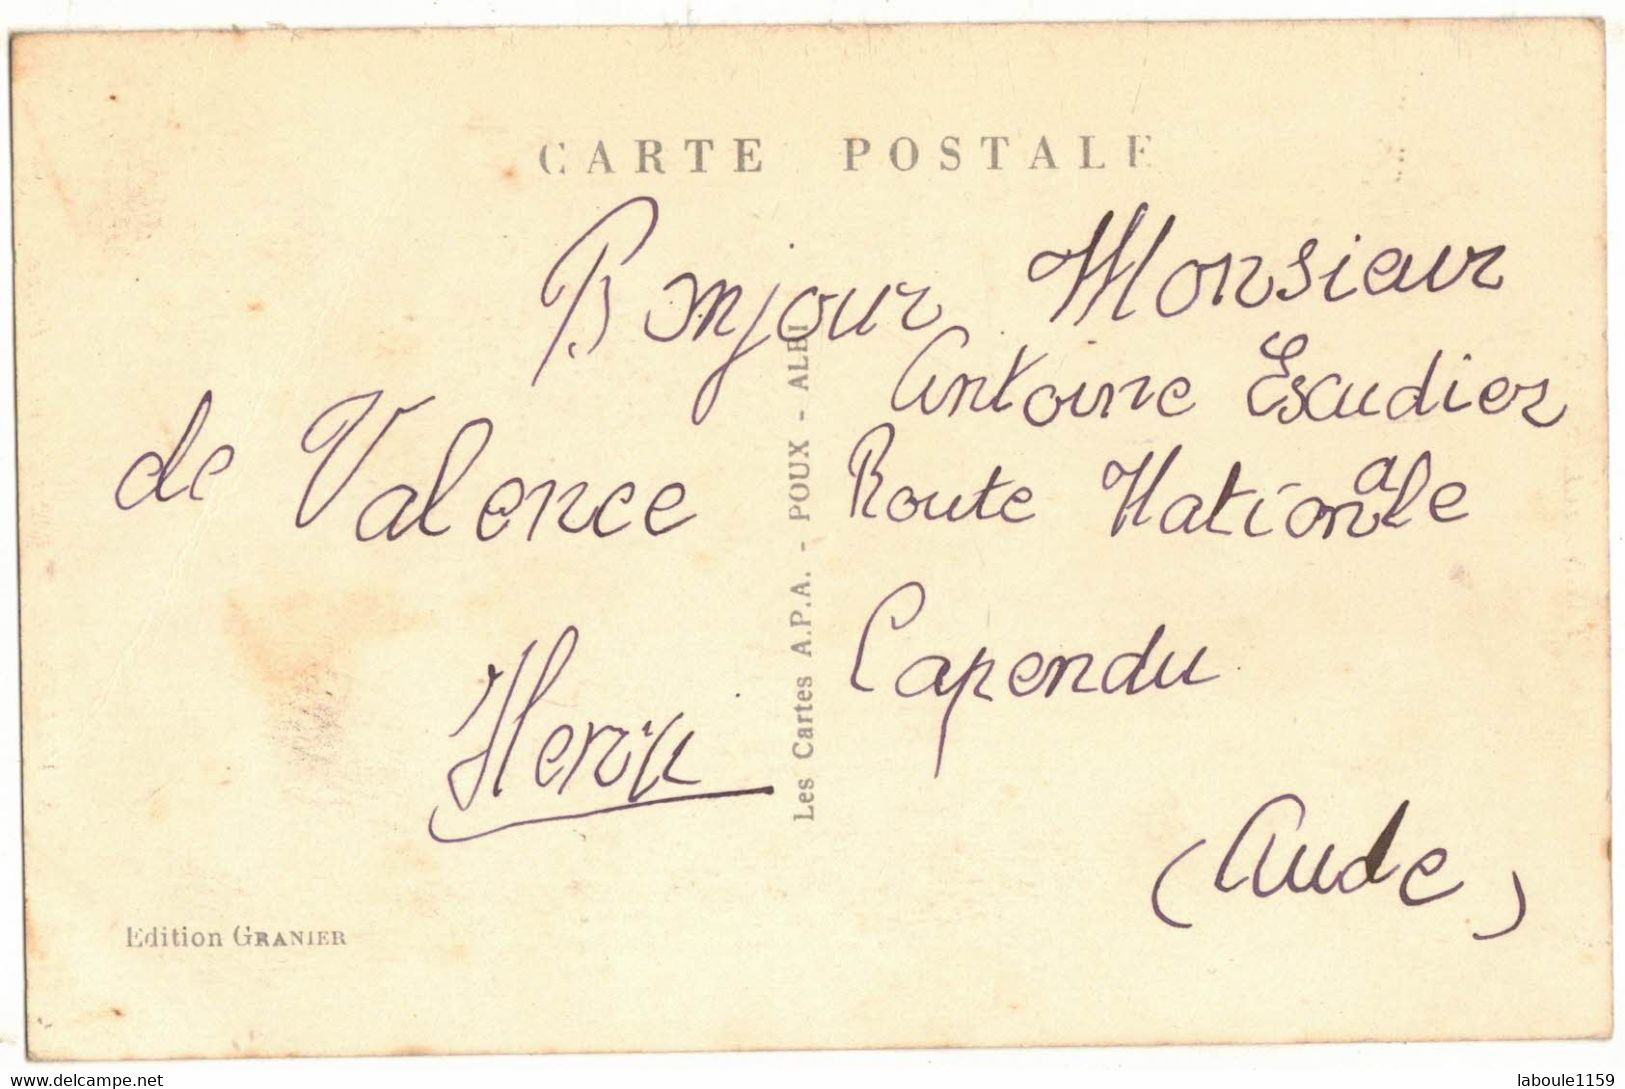 CARTE POSTALE
Bonjour
de Valence
Monsieur
Antoine Escudier
Route Nationale
Capendu
(Aude)
Les Cartes A.P.A. - POUX - ALBI
Edition GRANIER
www.delcampe.net
laboule1159